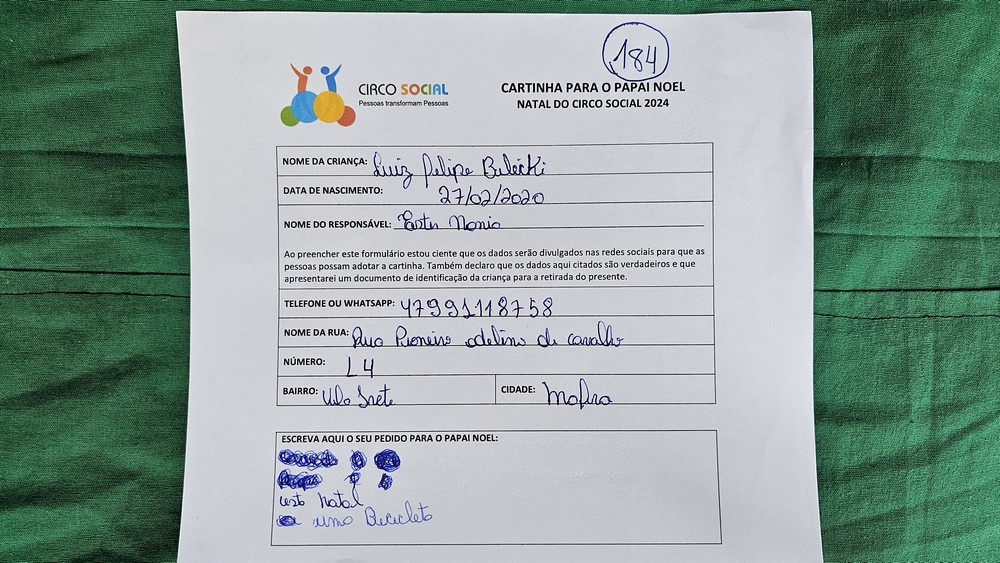 184
CIRCO SOCIAL
Pessoas transformam Pessoas
CARTINHA PARA O PAPAI NOEL
NATAL DO CIRCO SOCIAL 2024
NOME DA CRIANÇA: Luiz Felipe Bileicki
DATA DE NASCIMENTO: 27/02/2020
NOME DO RESPONSÁVEL: Ester
Ao preencher este formulário estou ciente que os dados serão divulgados nas redes sociais para que as
pessoas possam adotar a cartinha. Também declaro que os dados aqui citados são verdadeiros e que
apresentarei um documento de identificação da criança para a retirada do presente.
TELEFONE OU WHATSAPP: 47991118758
NOME DA RUA: Rua Pioneiro adelino de carvalho
NÚMERO: L4
BAIRRO: Vila
CIDADE: Mafra
ESCREVA AQUI O SEU PEDIDO PARA O PAPAI NOEL:
Natal
uma Bicicleta